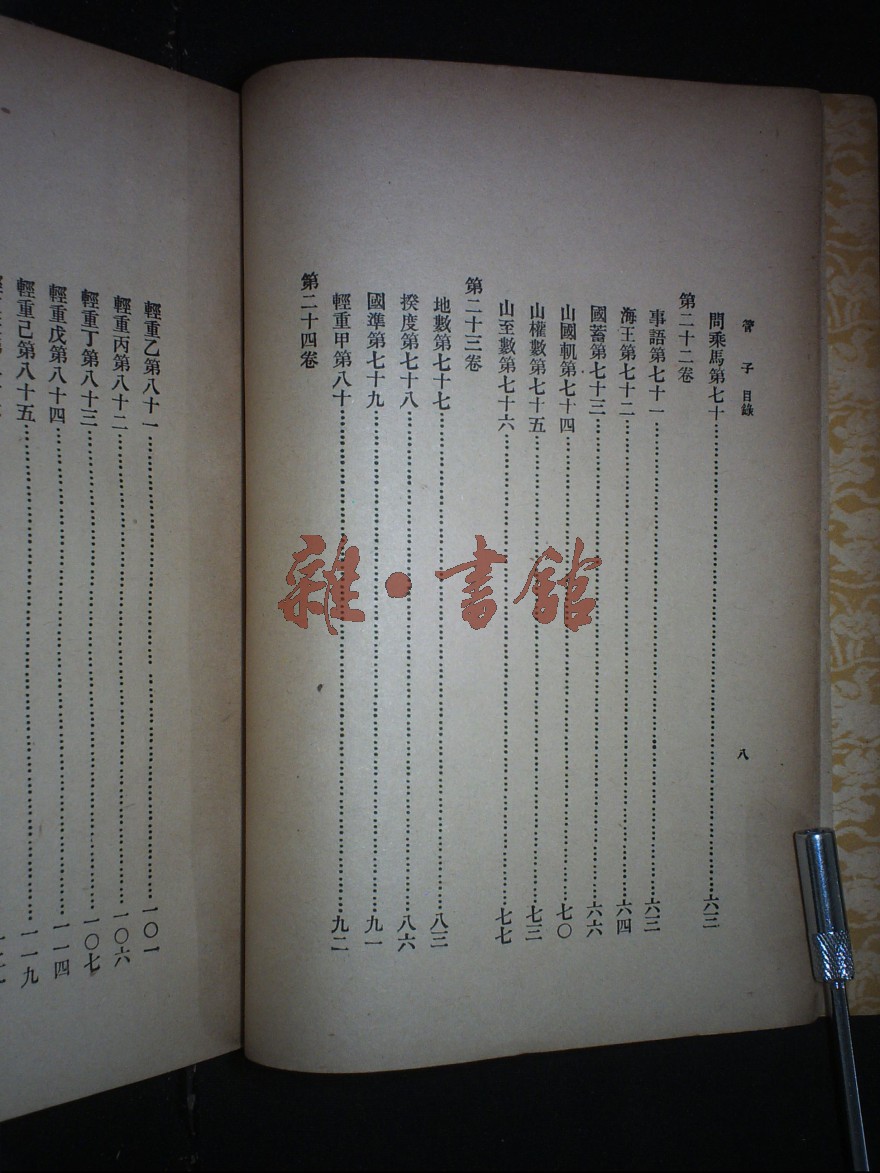 管子 目錄
八
問乘馬第七十……六三
第二十二卷
事語第七十一……六三
海王第七十二……六四
國蓄第七十三……六六
山國軌第七十四……七〇
山權數第七十五……七三
山至數第七十六……七七
第二十三卷
地數第七十七……八三
揆度第七十八……八六
國準第七十九……九一
輕重甲第八十……九二
第二十四卷
輕重乙第八十一……一〇一
輕重丙第八十二……一〇六
輕重丁第八十三……一〇七
輕重戊第八十四……一一四
輕重己第八十五……一一九
雜·書館